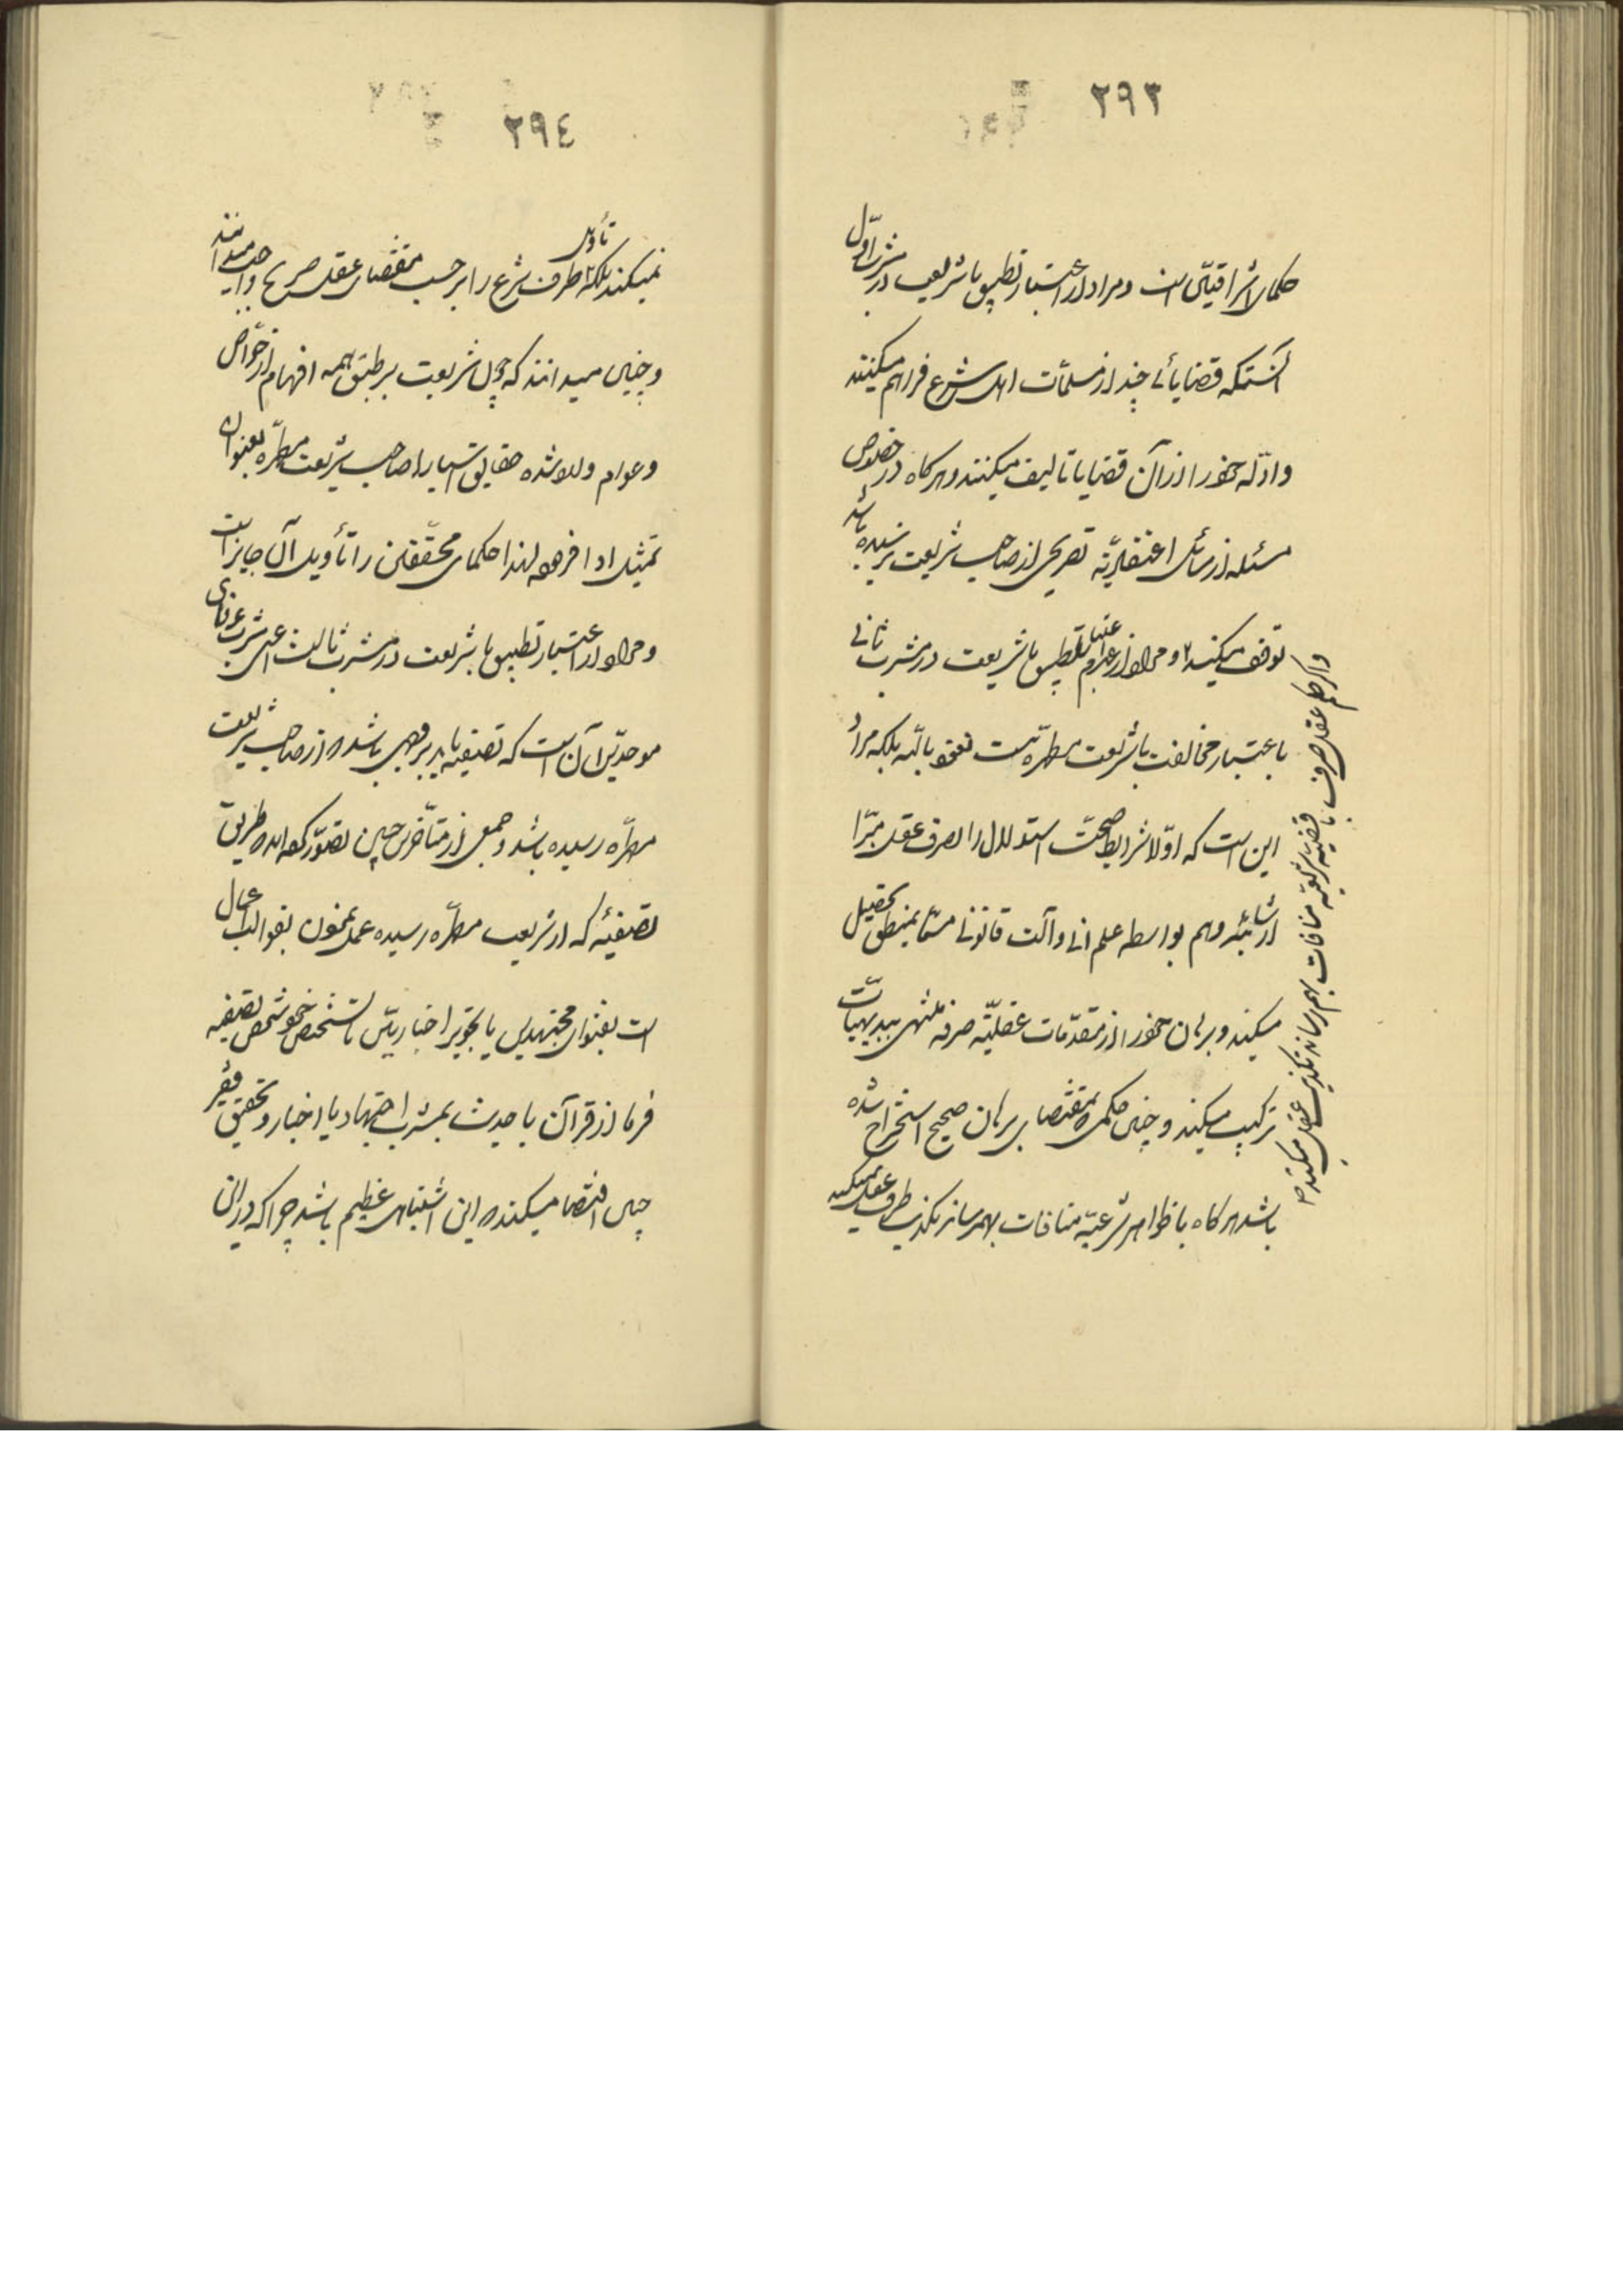 ٢٩٣
حکمای اشراقیین است و مراد از اعتبار تطبیق با شریعت در مشرب اول
آنستکه قضایائی چند از مسلمات اهل شرع فراهم میکنند
و ادلّه خود را از آن قضایا تالیف میکنند و هرکاه در خصوص
مسئله از مسائل اعتقادیّه تصریحی از صاحب شریعت نرسیده باشد
توقف میکنند و مراد از عدم اعتبار تطبیق با شریعت در مشرب ثانی
باعتبار مخالفت با شریعت مطهّره نیست نعوذ بالله بلکه مراد
این است که اوّلا شرایط صحت استدلال را بصرف عقل مبرّا
از شائبه وهم بواسطه علم الی و آلت قانونی مسمّا بمنطق تحصیل
میکنند و برهان خود را از مقدّمات عقلیّه صرفه منتهی ببدیهیّات
ترکیب میکنند و چنین حکمی که بمقتضای برهان صحیح استخراج شده
باشد هرکاه با ظواهر شرعیّه منافات بهمرساند تکذیب طرف عقل نمیکنند
و اگر حکم عقل صرف با قضیه شرعیّه منافات بهم رساند تکذیب عقل میکنند
٢٩٤
نمیکنند بلکه تأویل طرف شرع را بر حسب مقتضای عقل صریح واجب میدانند
و چنین میدانند که چون شریعت بر طبق همه افهام از خواص
و عوام وارد شده حقایق اشیا را صاحب شریعت مطهّره بعنوان
تمثیل ادا فرموده لهذا حکمای محقّقین را تأویل آن جایز است
و مراد از اعتبار تطبیق با شریعت در مشرب ثالث اعنی مشرب عرفای
موحدین آن است که تصفیه باید بر وجهی باشد که از صاحب شریعت
مطهّره رسیده باشد و جمعی از متأخرین چنین تصوّر کرده‌اند که طریق
تصفیهٔ که از شریعت مطهّره رسیده عمل نمودن بقوالب اعمال
است بعنوان مجتهدین یا بتجویز اخباریین تصفیه
فرما از قرآن یا حدیث بمشرب اجتهاد یا اخبار و تحقیق فقیر
چنین اقتضا میکند که این اشتباهی عظیم باشد چرا که در این